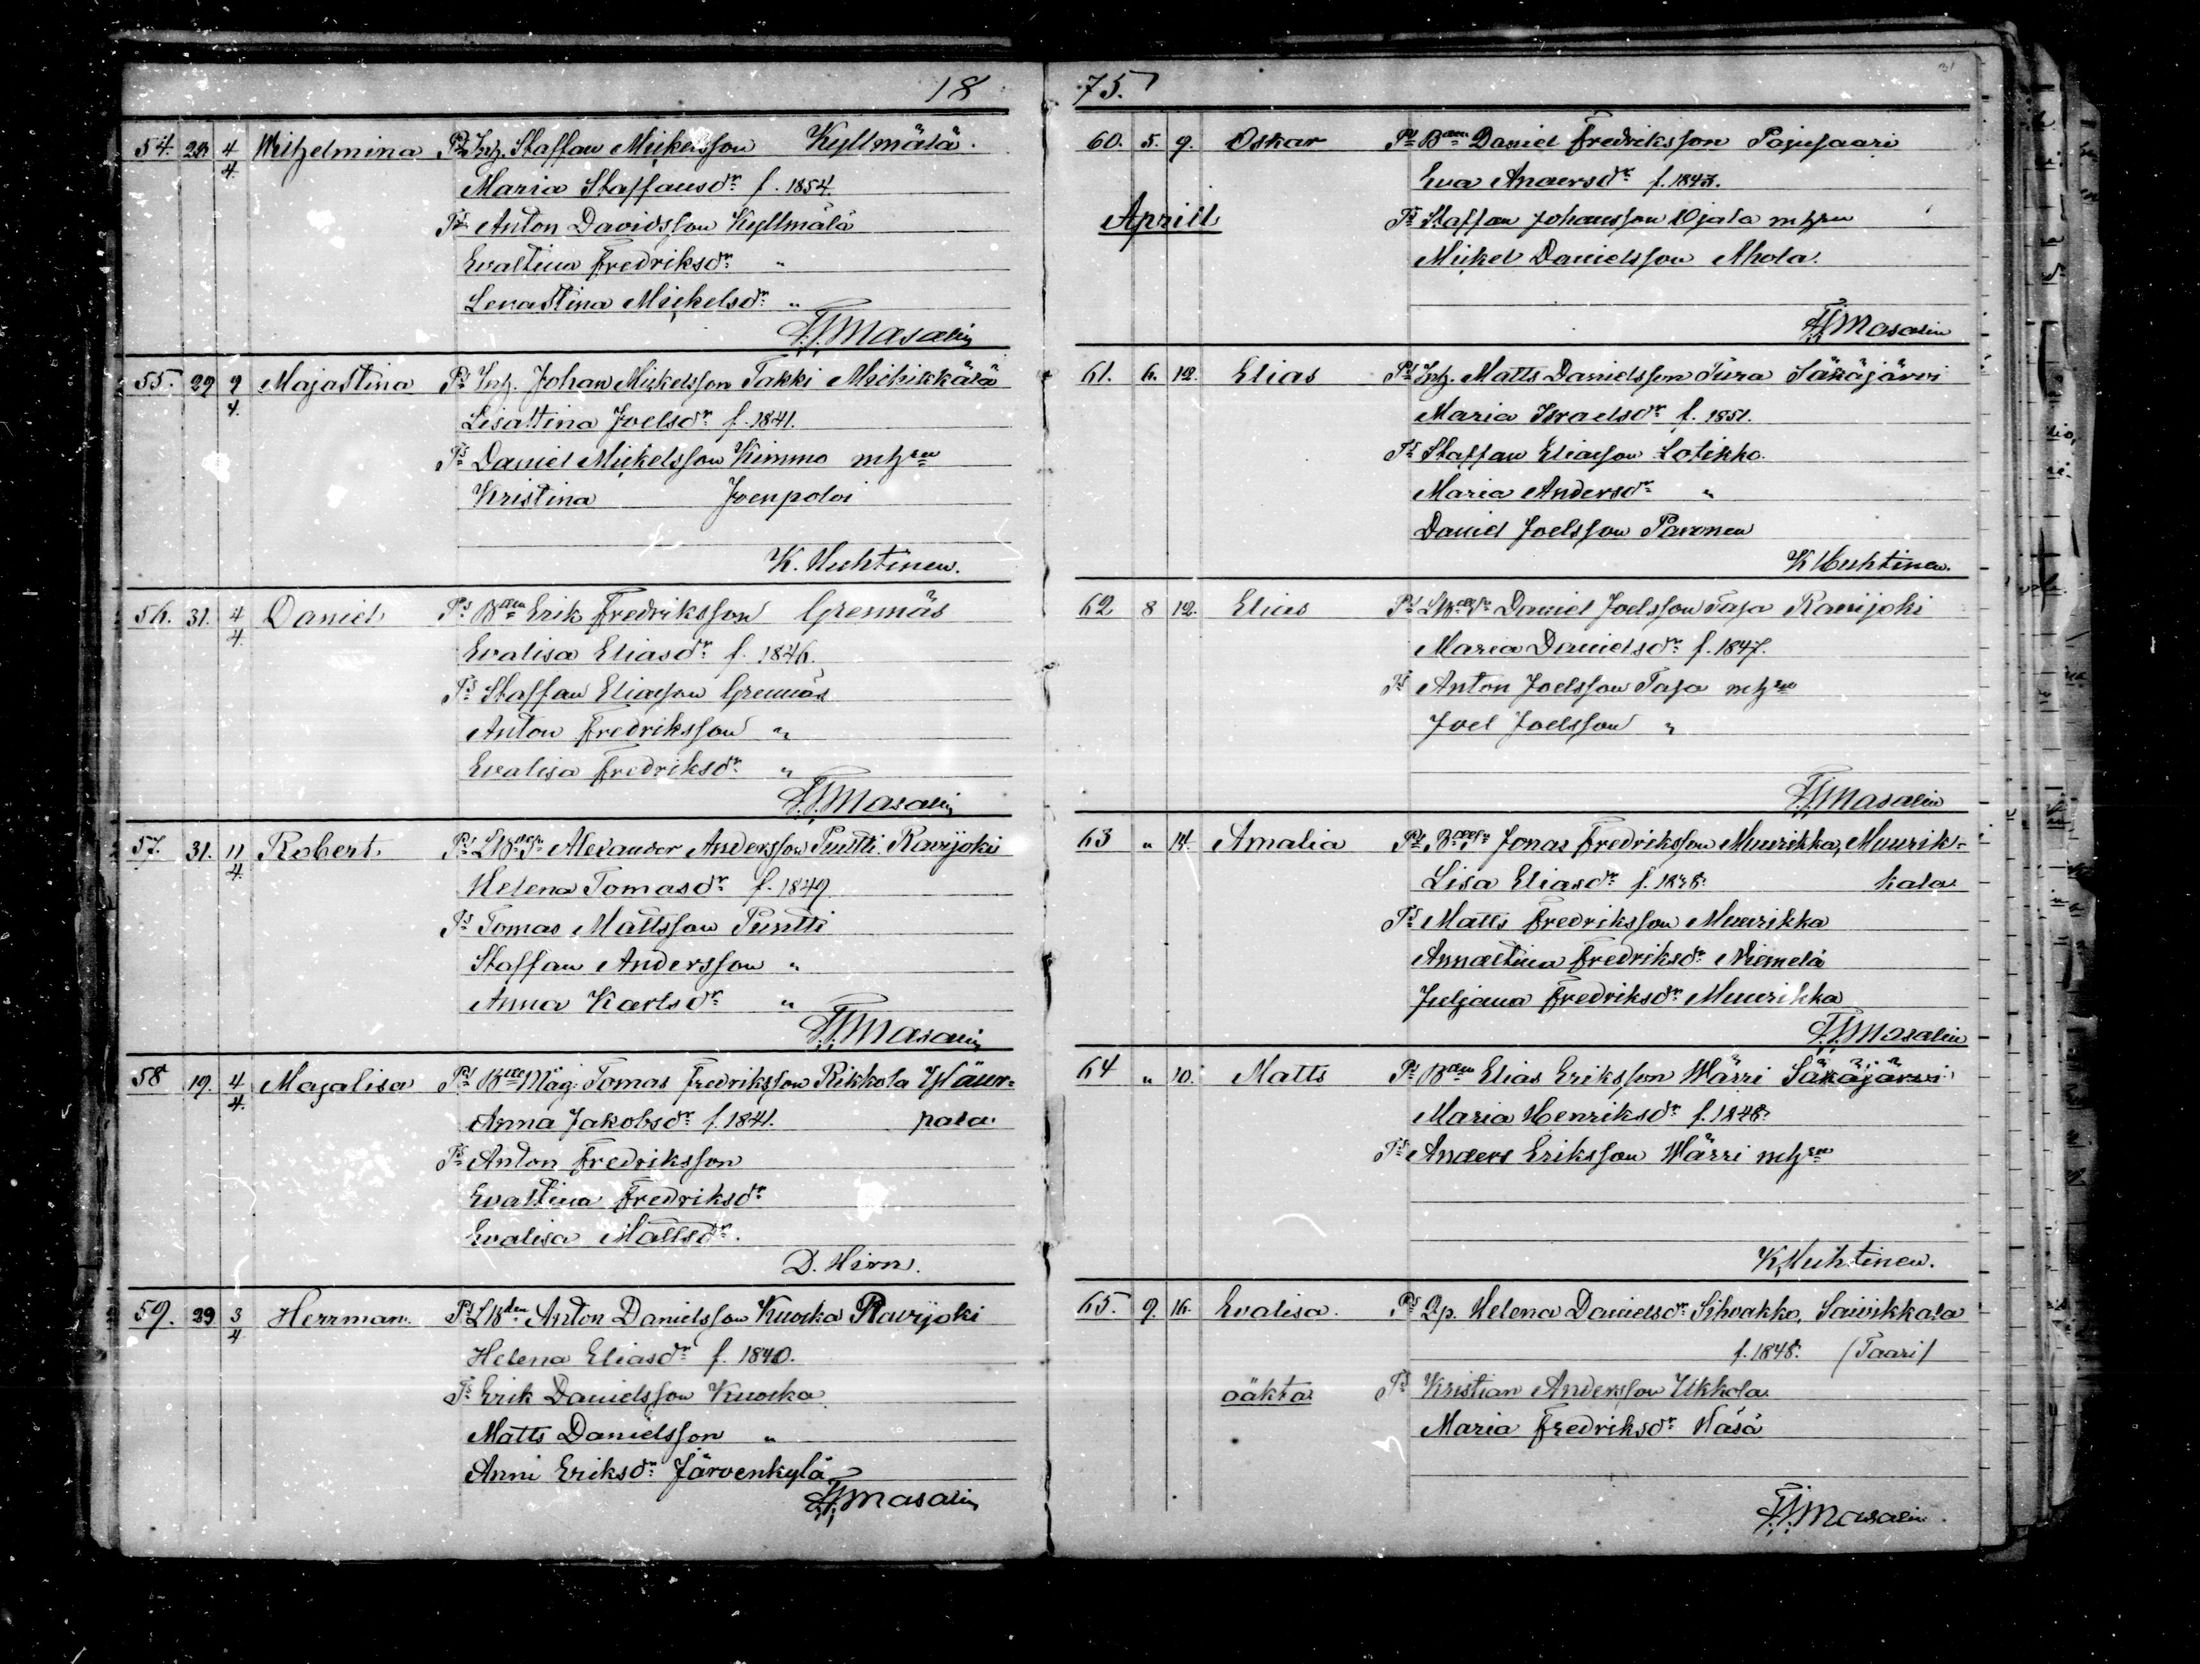 18
54. 28. 4/4 Wilhelmina Ps Inh. Staffan Mickelsson Kyllmälä.
Maria Staffansdr f. 1854.
Ts Anton Davidsson Kyllmälä
Evastina Fredriksdr "
Lenastina Mickelsdr "
Masalin
55. 29 2/4 Majastina Ps Inh. Johan Mickelsson Takki Miehikkälä
Lisastina Joelsdr f. 1841.
Ts Daniel Mickelsson Kimmo mhru
Kristina Joenpolvi
K. Huhtinen.
56. 31. 4/4 Daniel Ps Bdn Erik Fredriksson Grennäs
Evalisa Eliasdr f. 1846.
Ts Staffan Eliasson Grennäs
Anton Fredriksson "
Evalisa Fredriksdr "
Masalin
57. 31. 11/4 Robert Ps Alexander Andersson Puntti Ravijoki
Helena Tomasdr f. 1849
Ts Tomas Mattsson Puntti
Staffan Andersson "
Anna Karlsdr "
Masalin
58 19. 4/4 Majalisa Ps Måg Tomas Fredriksson Rikkola Yläur=
Anna Jakobsdr f. 1841. pala.
Ts Anton Fredriksson
Evastina Fredriksdr
Evalisa Mattsdr.
D. Hirn.
59. 29 3/4 Herrman. Ps LBden Anton Danielsson Kuokka Ravijoki
Helena Eliasdr f. 1840.
Ts Erik Danielsson Kuokka
Matts Danielsson "
Anni Eriksdr Järvenkylä
Masalin
75.
60. 5. 9. Oskar Ps Bdn Daniel Fredriksson Pajusaari
Eva Andersdr
Aprill Ts Staffan Johansson Ojala mhru
Mickel Danielsson Ahola.
Masalin
61. 6. 12. Elias Ps Inh. Matts Danielsson Säkäjärvi
Maria Israelsdr f. 1851.
Ts Staffan Eliasson Lotikko.
Maria Andersdr "
Daniel Joelsson Pavonen
K Huhtinen.
62 8 12. Elias Ps Daniel Joelsson Taja Ravijoki
Maria Danielsdr f. 1847.
Ts Anton Joelsson Taja mhru
Joel Joelsson "
Masalin
63 " 14. Amalia Ps Jonas Fredriksson Muurikka, Muurik=
Lisa Eliasdr kala.
Ts Matts Fredriksson Muurikka
Annastina Fredriksdr Niemelä
Juljana Fredriksdr Muurikka
Masalin
64 " 10. Matts Ps Bdn Elias Eriksson Wärri Säkäjärvi
Maria Henriksdr f. 1848.
Ts Anders Eriksson Wärri mhru
K Huhtinen.
65. 9. 16. Evalisa. Ps Qp. Helena Danielsdr Sihvakko, Saivikkala
f. 1848. (Taari)
oäkta Ts Kristian Andersson Ukkola.
Maria Fredriksdr Häsä
Masalin.